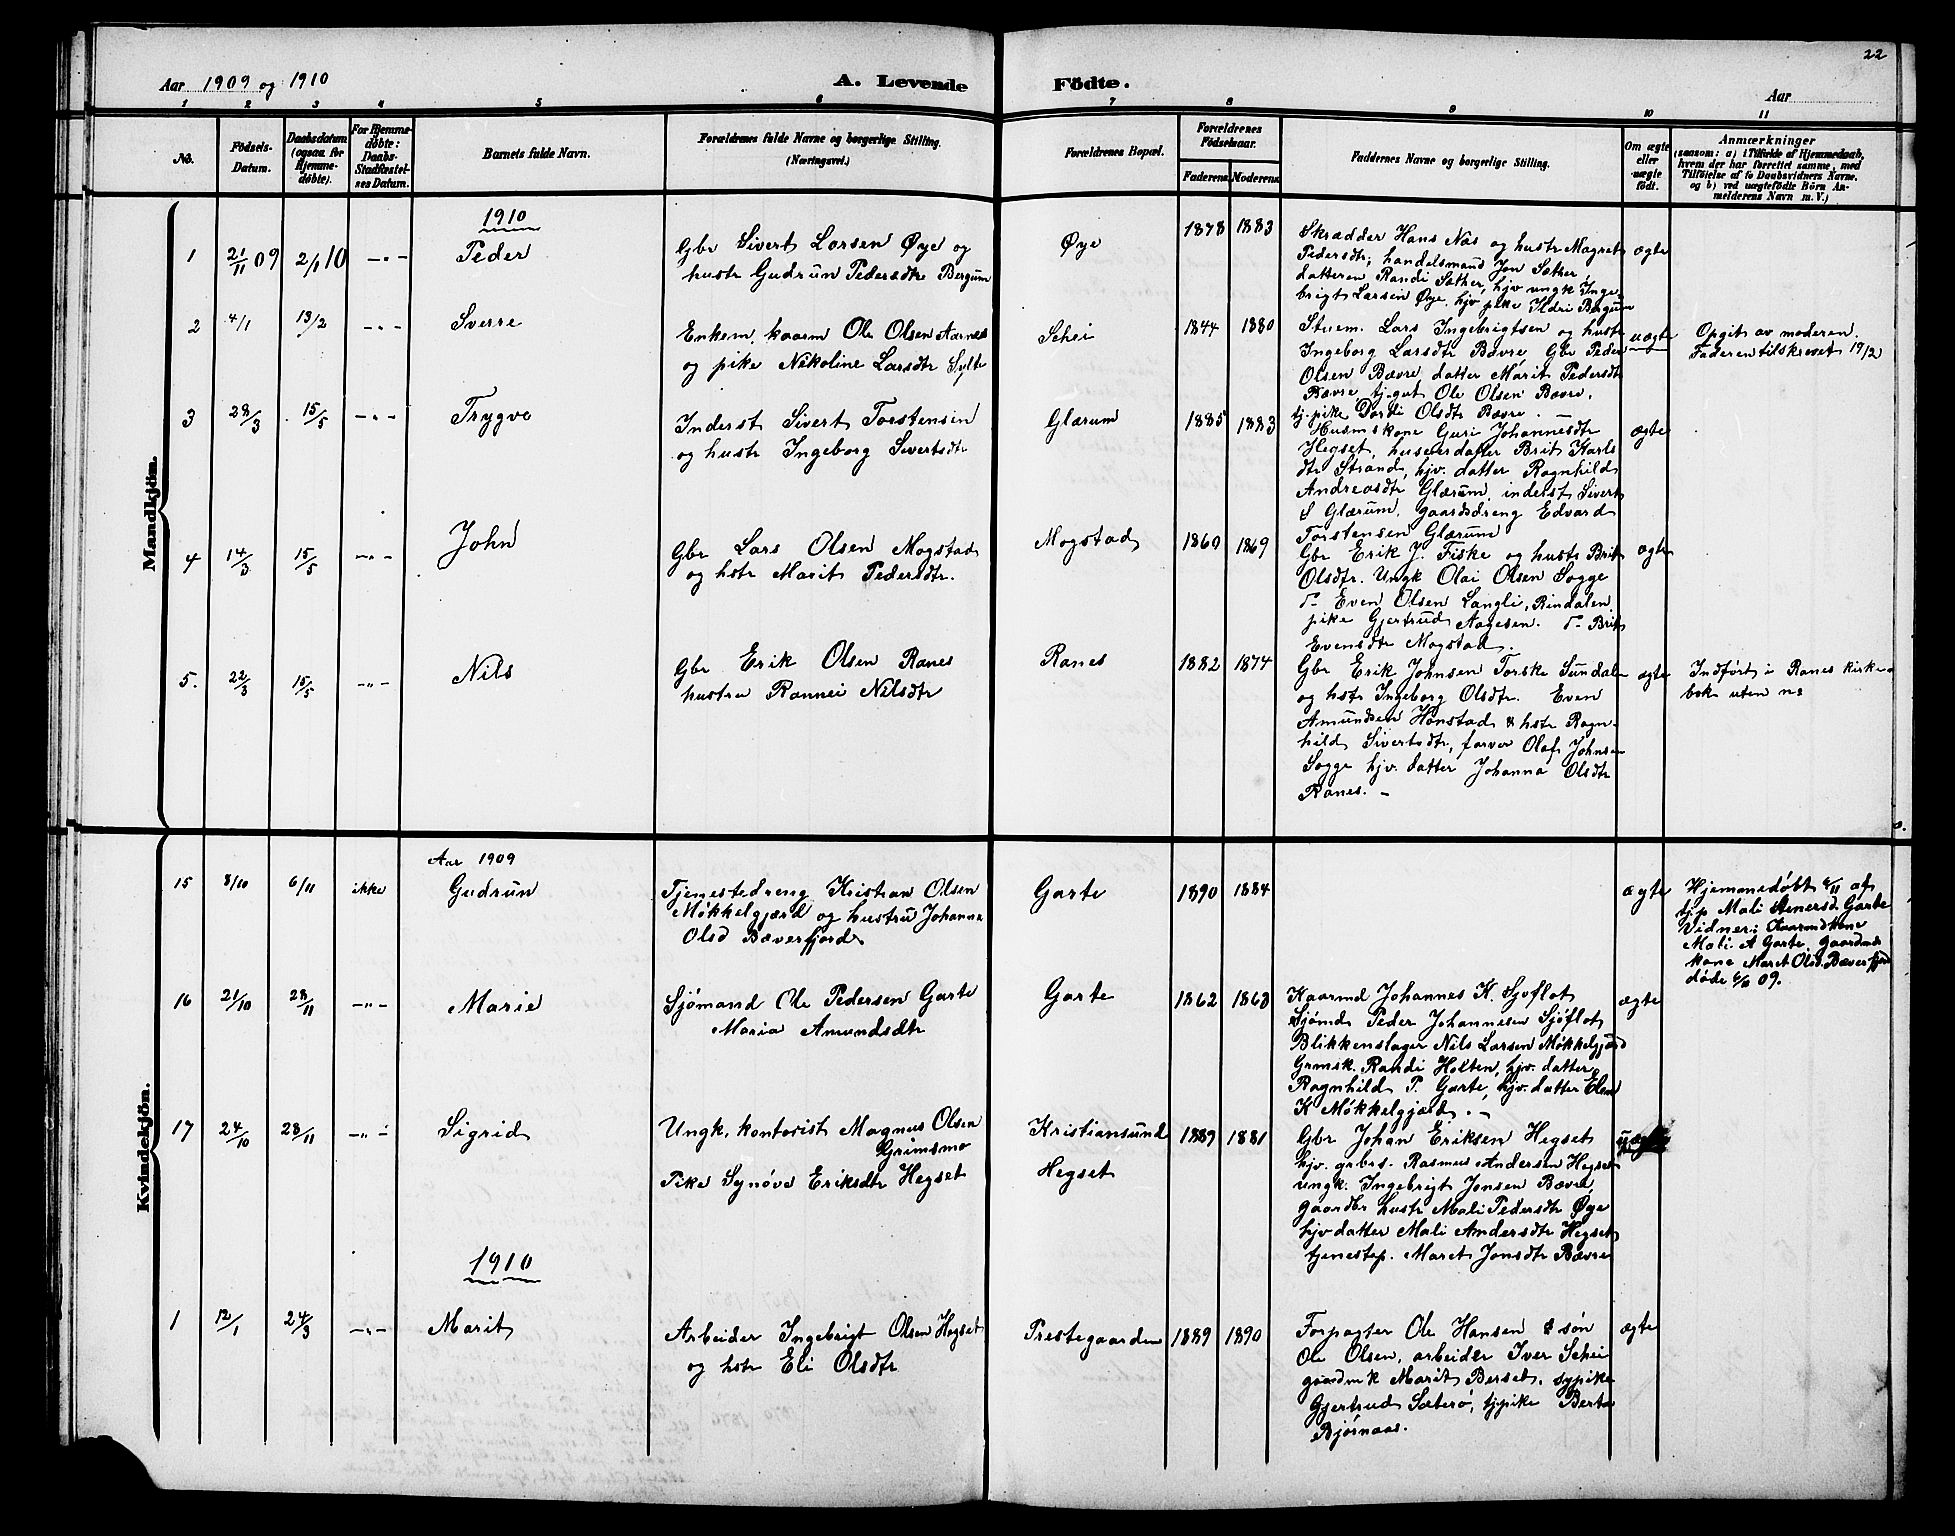 22
Aar 1909 og 1910
A. Levende Födte.
Aar
1 2 3 4 5 6 7 8 9 10 11
No.
Födsels-
Datum.
Daabsdatum
(ogsaa for
Hjemme-
döbte).
For Hjemme-
döbte:
Daabs-
Stadfæstel-
ses Datum.
Barnets fulde Navn.
Forældrenes fulde Navne og borgerlige Stilling.
(Næringsvei.)
Forældrenes Bopæl.
Forældrenes
Födselsaar.
Faderens. Moderens.
Faddernes Navne og borgerlige Stilling.
Om ægte
eller
uægte
födt.
Anmærkninger
(saasom: a) i Tilfælde af Hjemmedaab,
hvem der har forrettet samme, med
Tilföielse af to Daabsvidners Navne.
og b) ved uægtefödte Börn An-
melderens Navn m. V.)
Mandkjön.
1910
1 21/11 09 2/1 10 -"- Peder
Gbr Sivert Larsen Øye og
hustr Gudrun Pedersdtr Bergum
Øye
1878 1883
Skrædder Hans Nas og hustr Magret
Pedersdtr; handelsmand Jon Sæther,
datteren Randi Sæther, hjv ungk Inge
brigt Larsen Øye, hjv pike Ildri Bergum
ægte
2 4/1 13/2 -"- Sverre
Enkem, kaarm Ole Olsen Aarnes
og pike Nikoline Larsdtr Sylte
Schei
1844 1880
Stuem. Lars Ingebrigtsen og hustr
Ingeborg Larsdtr Bævre, Gbr Peder
Olsen Bævre datter Marit Pedersdtr
Bævre tj.gut Ole Olsen Bævre,
tj.pike Dordi Olsdtr Bævre. -
uægte
Opgit av moderen.
Faderen tilskrevet 19/2
3 28/3 15/5 -"- Trygve
Inderst Sivert Torstensen
og hustr Ingeborg Sivertsdtr
Glærum
1885 1883
Husmskone Guri Johannesdtr
Hegset, huseierdatter Brit Karls
dtr Strand, hjv. datter Ragnhild
Andreasdtr Glærum, inderst Sivert
S Glærum, gaardsdreng Edvard
Torstensen Glærum
ægte
4 14/3 15/5 -"- John
Gbr Lars Olsen Mogstad
og hstr Marit Pedersdtr.
Mogstad
1860 1869
Gbr Erik J. Fiske og hustr Brit
Olsdtr. Ungk Olai Olsen Sogge
d- Even Olsen Langli, Rindalen
pike Gjertrud Aagesen. d- Brit
Evensdtr Mogstad.
ægte
5. 22/3 15/5 -"- Nils
Gbr Erik Olsen Ranes
hustru Rannei Nilsdtr
Ranes
1882 1874
Gbr Erik Johnsen Torske Sundalen
og hstr Ingeborg Olsdtr. Even
Amundsen Honstad & hstr Ragn-
hild Sivertsdtr, farver Olaf Johnsen
Sogge hjv. datter Johanna Olsdtr
Ranes. -
ægte
Indført i Ranes kirke
bok uten no
Kvindekjön.
Aar 1909
15 8/10 6/11 ikke Gudrun
Tjenestedreng Kristian Olsen
Møkkelgjærd og hustru Johanna
Olsd Bæverfjord
Garte
1890 1884
ægte
Hjemmedøbt af
tjp Mali Garte
Vidner: Kaarmdkone
Mali A Garte, gaardm
kone Maret Olsd. Bæverfjord
døde 09.
16 21/10 28/11 -"- Marie
Sjömand Ole Pedersen Garte
Maria Amundsdtr
Garte
1862 1863
Kaarmd Johannes K. Sjøflot
Sjømd Peder Johannesen Sjøflot
Blikkenslager Nils Larsen Møkkelgjærd
Grmsk. Randi Holten, hjv. datter
Ragnhild P. Garte, hjv. datter Elen
K Møkkelgjærd. -
ægte
17 24/10 28/11 -"- Sigrid
Ungk, kontorist Magnus Olsen
Grimsmo
Pike Synøve Eriksdtr Hegset
Kristiansund
Hegset
1889 1881
Gbr Johan Eriksen Hegset
hjv. grbrs. Rasmus Andersen Hegset
ungk. Ingebrigt Jonsen Bævre
gaardbr hustr Mali Pedersdtr Øye
hjv datter Mali Andersdtr Hegset
tjenestep. Maret Jonsdtr Bævre
1910
1 12/1 24/3 -"- Marit
Arbeider Ingebrigt Olsen Hegset
og hstr Eli Olsdtr
Prestegaarden
1889 1890
Forpagter Ole Hansen & søn
Ole Olsen, arbeider Iver Schei
gaardmk Marit Berset, sypike
Gjertrud Sæterø, tjpike Berta
Bjørnaas.
ægte